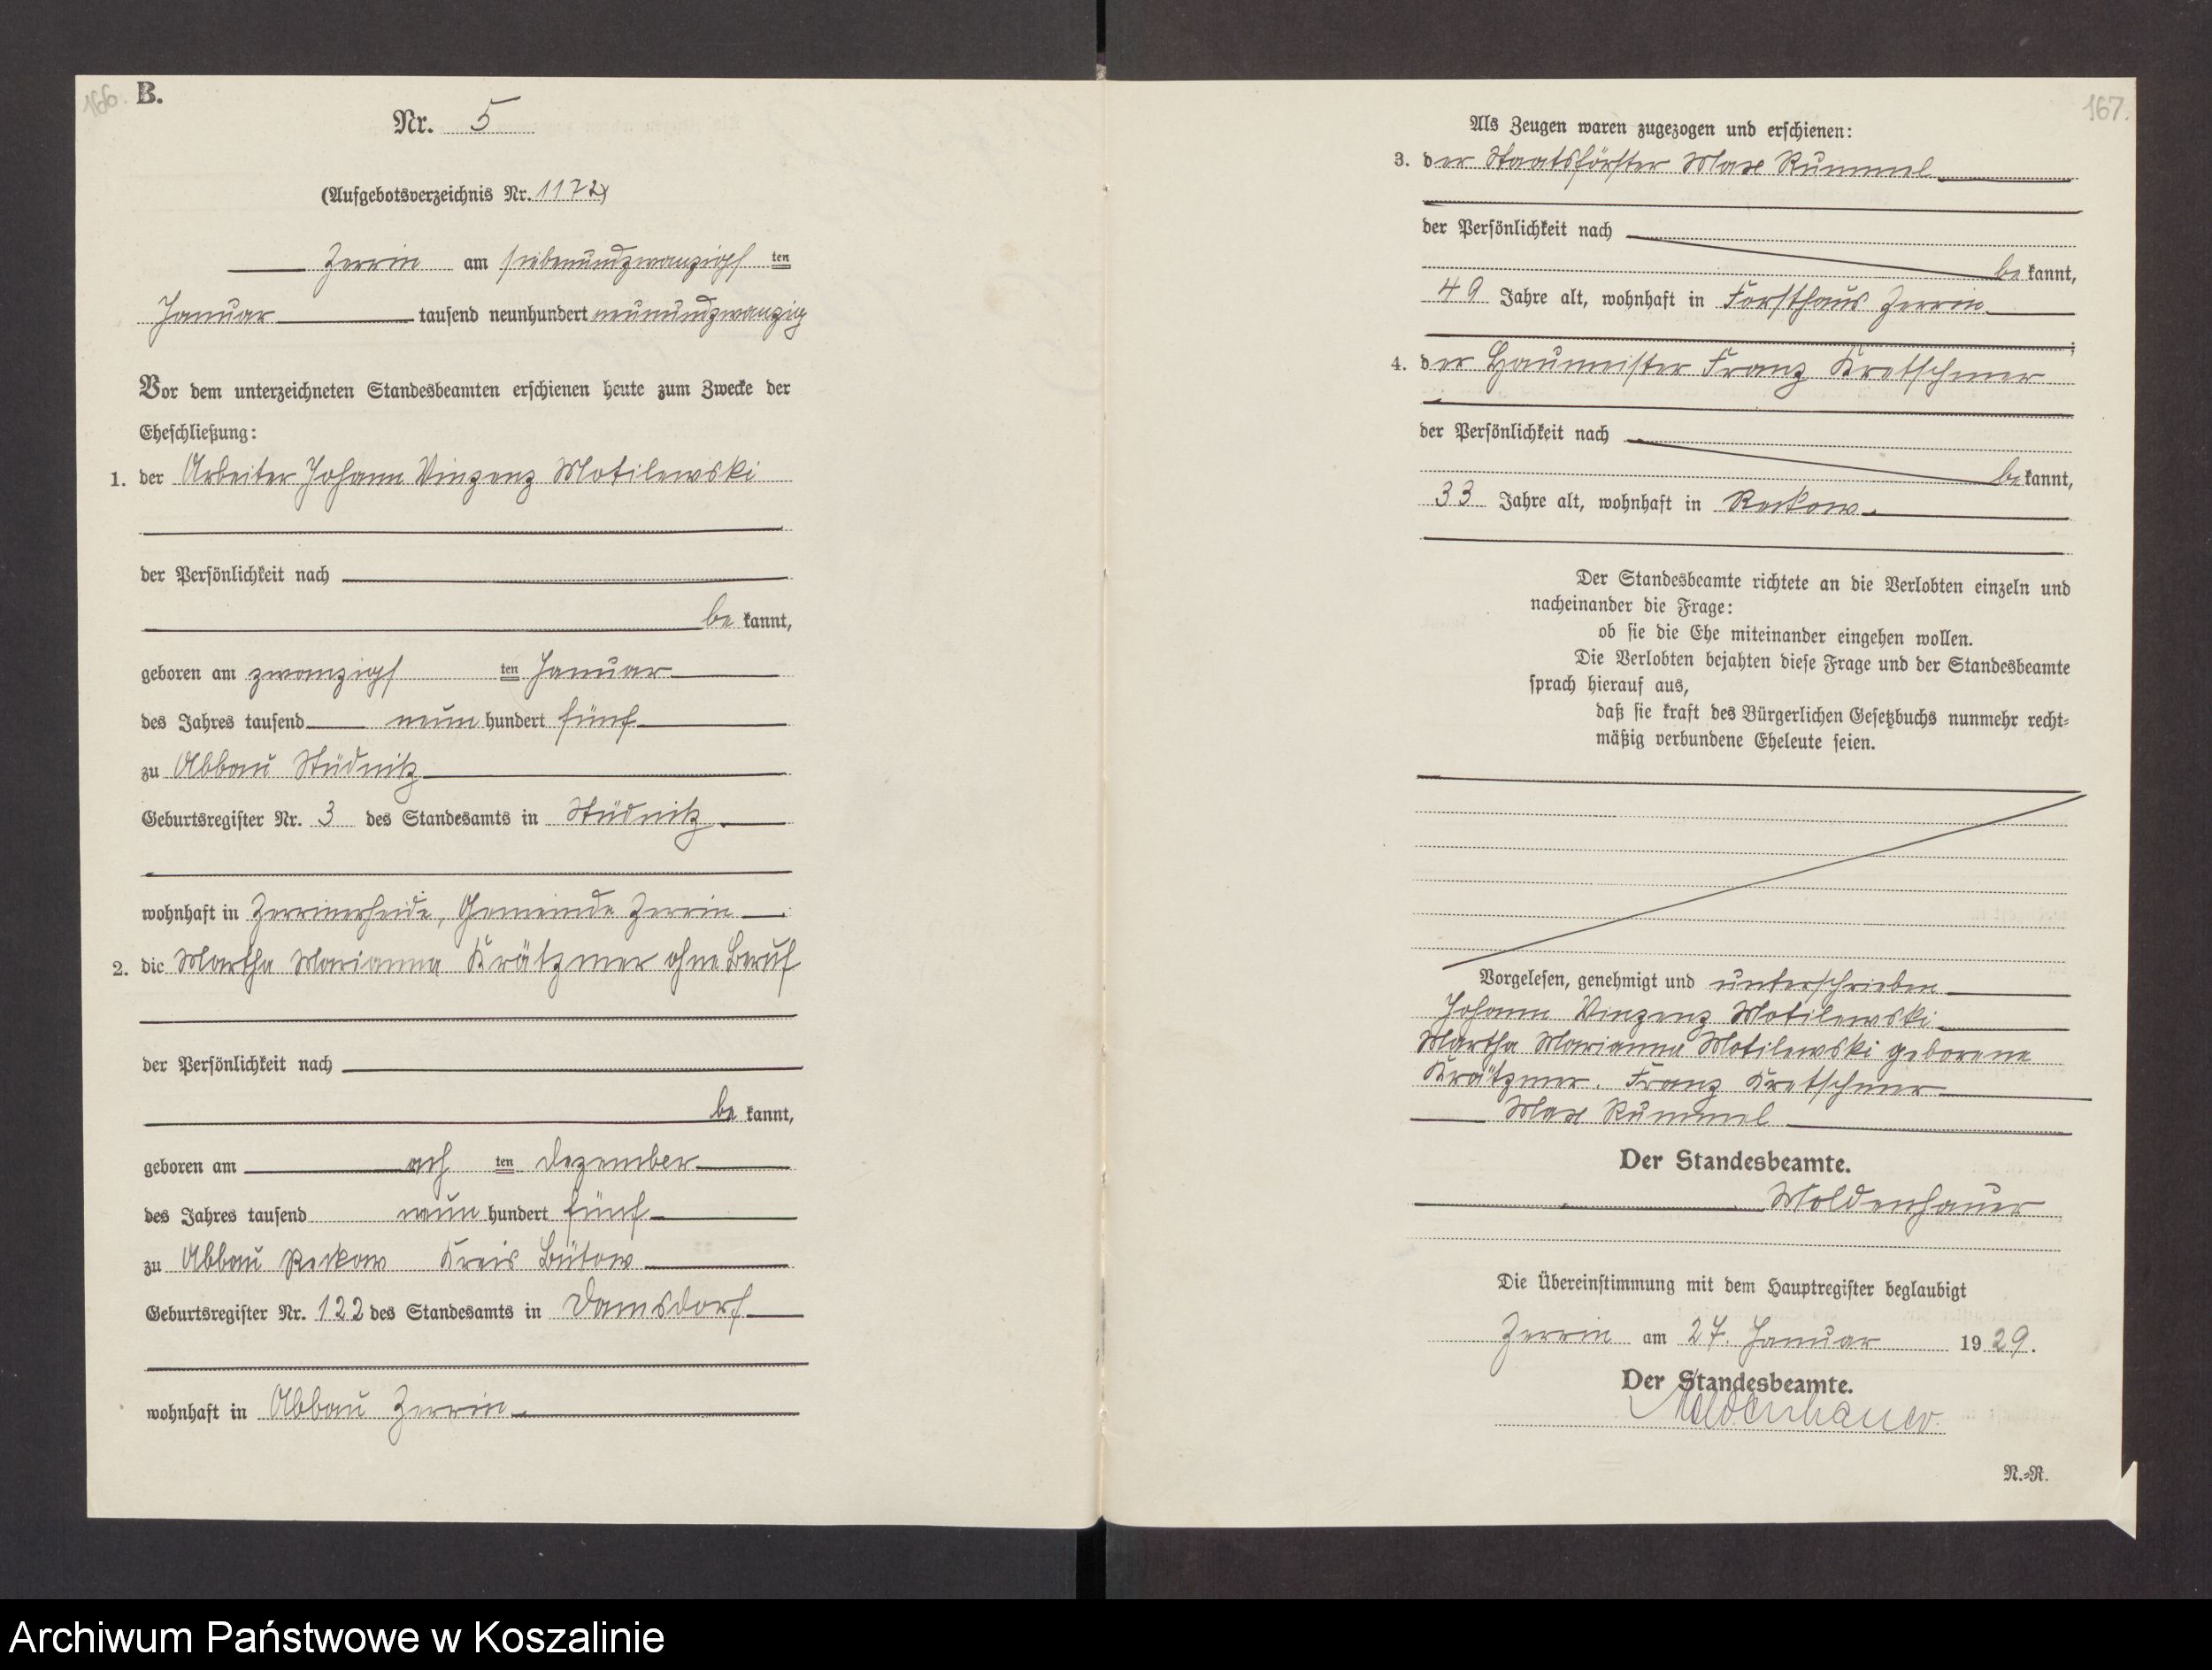 166.
B.
Nr. 5
(Aufgebotsverzeichnis Nr. 1172)
Zerrin am siebenundzwanzigs ten
Januar tausend neunhundert neunundzwanzig
Vor dem unterzeichneten Standesbeamten erschienen heute zum Zwecke der
Eheschließung:
1. der Arbeiter Johann Vinzenz Motilewski
der Persönlichkeit nach
be kannt,
geboren am zwanzigs ten Januar
des Jahres tausend neun hundert fünf
zu Abbau Stüdnitz
Geburtsregister Nr. 3 des Standesamts in Stüdnitz.
wohnhaft in Zerrinerheide, Gemeinde Zerrin
2. die Martha Marianna Krätzmer ohne Beruf
der Persönlichkeit nach
be kannt,
geboren am ach ten Dezember
des Jahres tausend neun hundert fünf
zu Abbau Reckow Kreis Bütow
Geburtsregister Nr. 122 des Standesamts in Damsdorf
wohnhaft in Abbau Zerrin.
167.
Als Zeugen waren zugezogen und erschienen:
3. der Staatsförster Max Rummel
der Persönlichkeit nach
be kannt,
49 Jahre alt, wohnhaft in Forsthaus Zerrin
;
4. der Haumeister Franz Kretschmer
der Persönlichkeit nach
be kannt,
33 Jahre alt, wohnhaft in Reckow.
Der Standesbeamte richtete an die Verlobten einzeln und
nacheinander die Frage:
ob sie die Ehe miteinander eingehen wollen.
Die Verlobten bejahten diese Frage und der Standesbeamte
sprach hierauf aus,
daß sie kraft des Bürgerlichen Gesetzbuchs nunmehr recht-
mäßig verbundene Eheleute seien.
Vorgelesen, genehmigt und unterschrieben
Johann Vinzenz Motilewski
Martha Marianna Motilewski geborene
Krätzmer. Franz Kretschmer
Max Rummel
Der Standesbeamte.
Moldenhauer
Die Übereinstimmung mit dem Hauptregister beglaubigt
Zerrin am 27. Januar 1929.
Der Standesbeamte.
Moldenhauer.
N.-R.
Archiwum Państwowe w Koszalinie